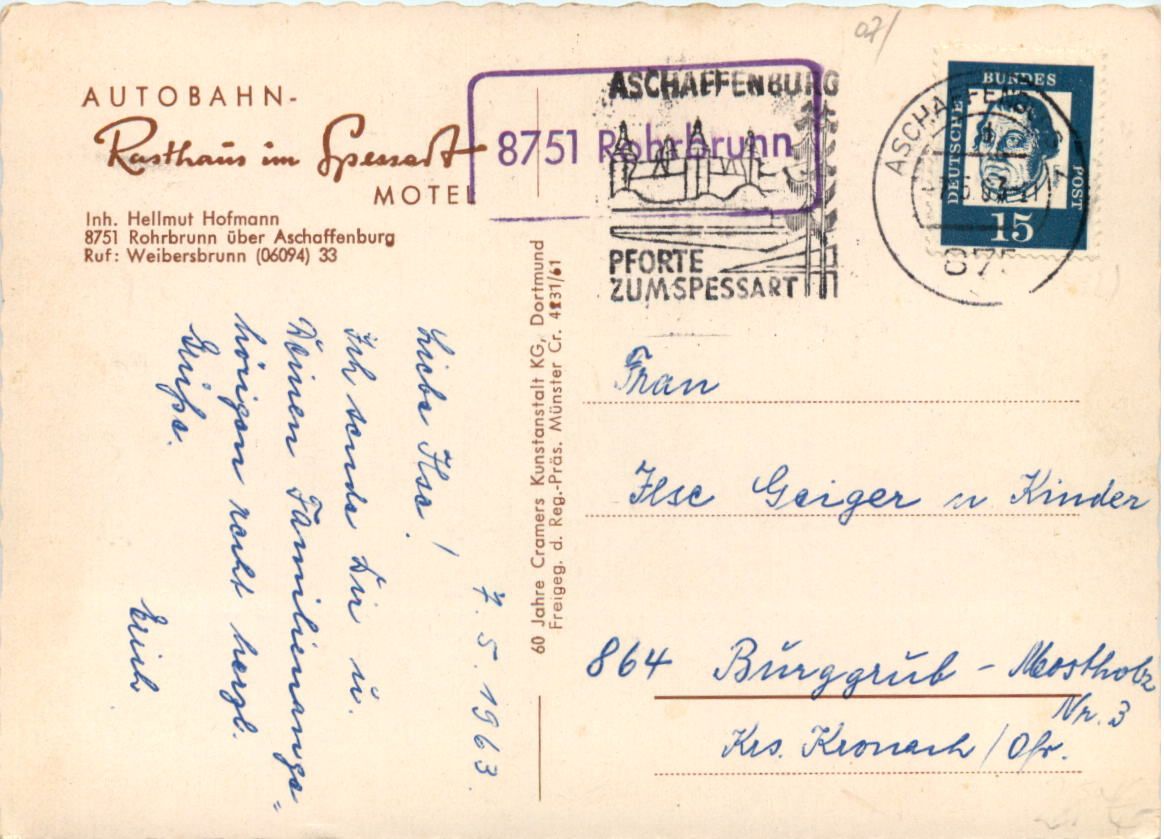 AUTOBAHN-
Rasthaus im Spessart
MOTEL
Inh. Hellmut Hofmann
8751 Rohrbrunn über Aschaffenburg
Ruf: Weibersbrunn (06094) 33
8751 Rohrbrunn
ASCHAFFENBURG
PFORTE
ZUM SPESSART
ASCHAFFENBURG
875
DEUTSCHE
BUNDES
POST
15
07/
7. 5. 1963.
Liebe Ilse!
Ich sende Dir u.
Deinen Familienange=
hörigen recht herzl.
Grüße.
Erich
60 Jahre Cramers Kunstanstalt KG, Dortmund
Freigeg. d. Reg.-Präs. Münster Cr. 4131/61
Frau
Ilse Geiger u Kinder
864 Burggrub - Mostholz
Nr. 3
Krs. Kronach / Ofr.